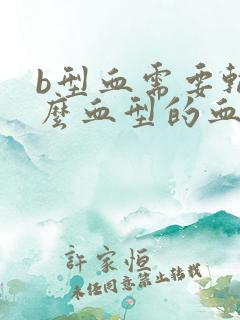 b型血需要輸
麼血型的血
許家恒
未经同意禁止转载